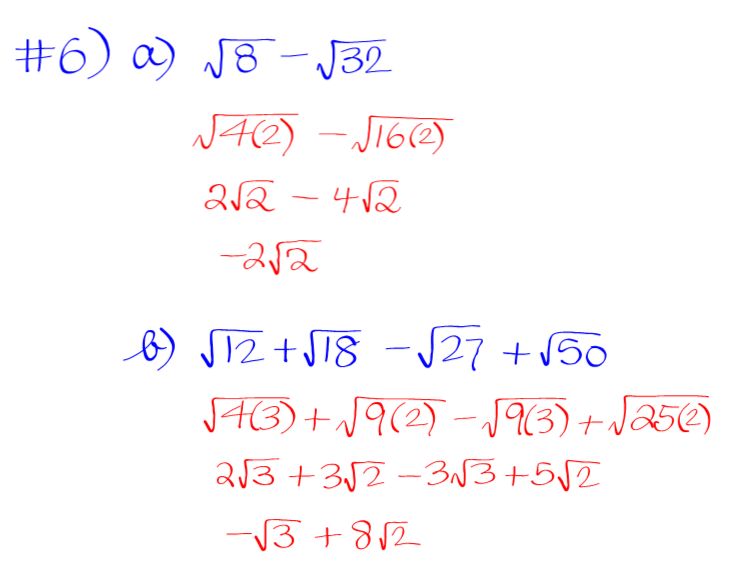 #6) a) √8 - √32
√4(2) - √16(2)
2√2 - 4√2
-2√2
b) √12 + √18 - √27 + √50
√4(3) + √9(2) - √9(3) + √25(2)
2√3 + 3√2 - 3√3 + 5√2
-√3 + 8√2